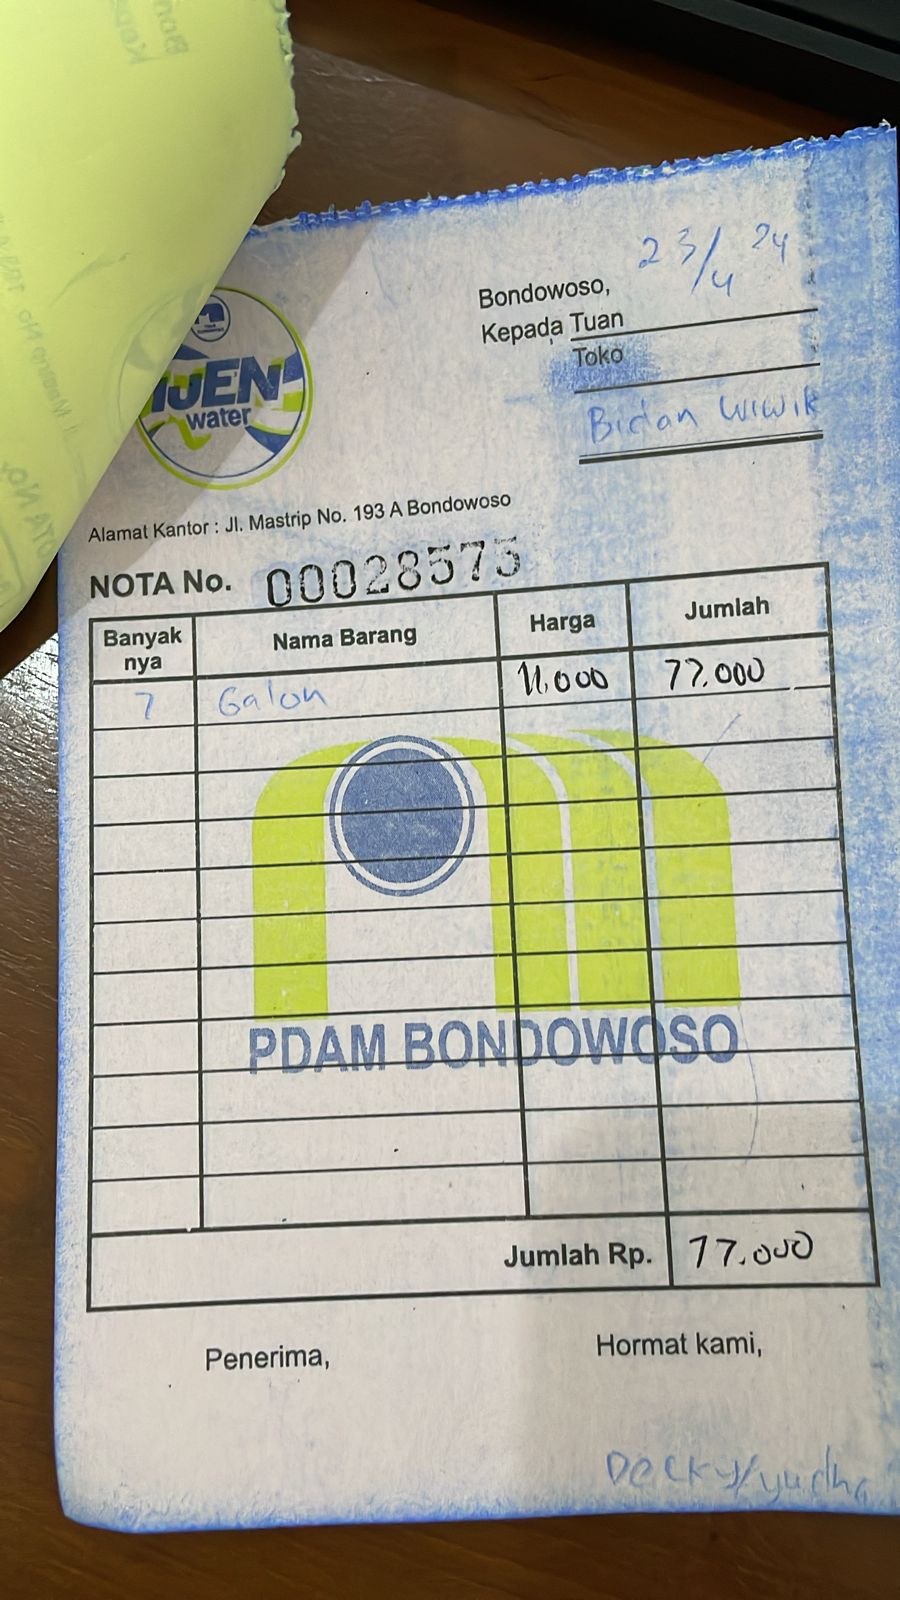 Bondowoso, 23/4 24
Kepada Tuan
Toko
Bidan Wiwik
IJEN
water
Alamat Kantor : Jl. Mastrip No. 193 A Bondowoso
NOTA No. 00028575
Banyak nya Nama Barang Harga Jumlah
7 Galon 11.000 77.000
PDAM BONDOWOSO
Jumlah Rp. 77.000
Penerima, Hormat kami,
Decky/yudha